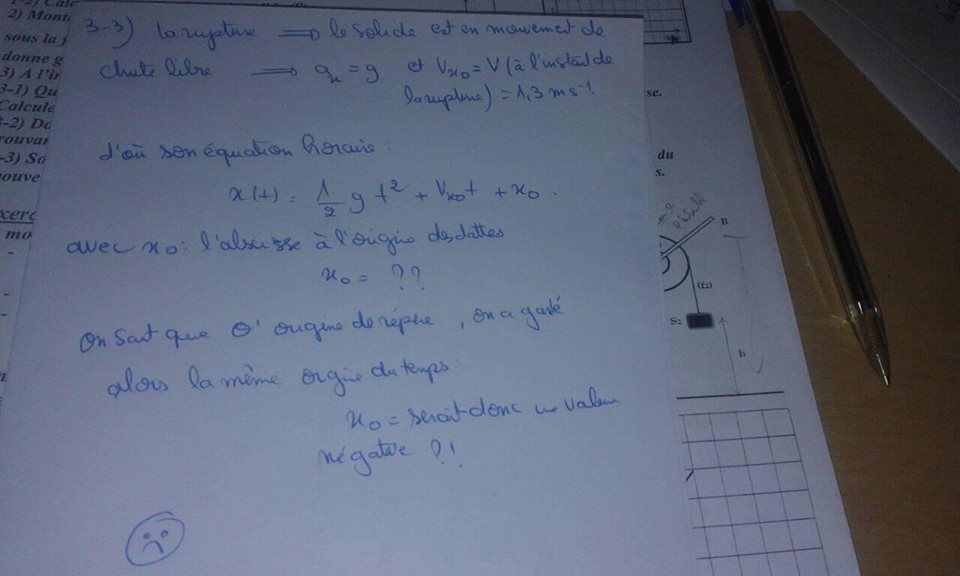 1-2) Calc
2) Monti
sous la f
donne g
3) A l'in
3-1) Qu
Calcule
3-2) Do
rouvan
-3) So
ouve
exerc
mo
3-3) La rupture ⟹ le solide est en mouvement de
chute libre ⟹ a_x = g et V_x0 = V (à l'instant de
la rupture) = 1,3 m s⁻¹.
d'où son équation horaire :
x(t) = 1/2 g t² + V_x0 t + x0 .
avec x0 : l'abscisse à l'origine des dattes
x0 = ??
On sait que O' origine de répère, on a gardé
alors la même orgine du temps.
x0 = serait donc une valeur
négative ?!
se.
du
s.
B
(f2)
S2
h